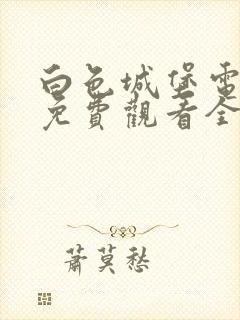 白色城堡電
免費觀看全
蕭莫愁